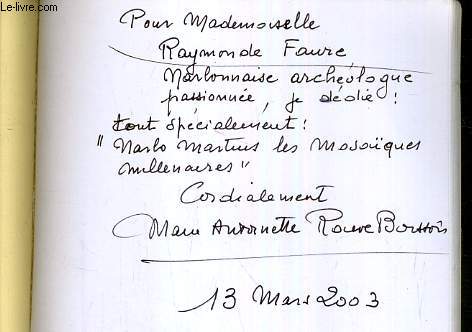 Le-livre.com
Pour Mademoiselle
Raymonde Faure
Narbonnaise archéologue
passionnée, je dédie !
tout spécialement :
"Narbo Martius les Mosaïques
millenaires"
Cordialement
Marie Antoinette
13 Mars 2003